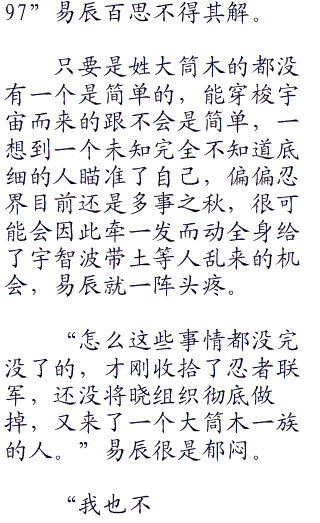 97”易辰百思不得其解。
只要是姓大筒木的都没
有一个是简单的，能穿梭宇
宙而来的跟不会是简单，一
想到一个未知完全不知道底
细的人瞄准了自己，偏偏忍
界目前还是多事之秋，很可
能会因此牵一发而动全身给
了宇智波带土等人乱来的机
会，易辰就一阵头疼。
“怎么这些事情都没完
没了的，才刚收拾了忍者联
军，还没将晓组织彻底做
掉，又来了一个大筒木一族
的人。”易辰很是郁闷。
“我也不